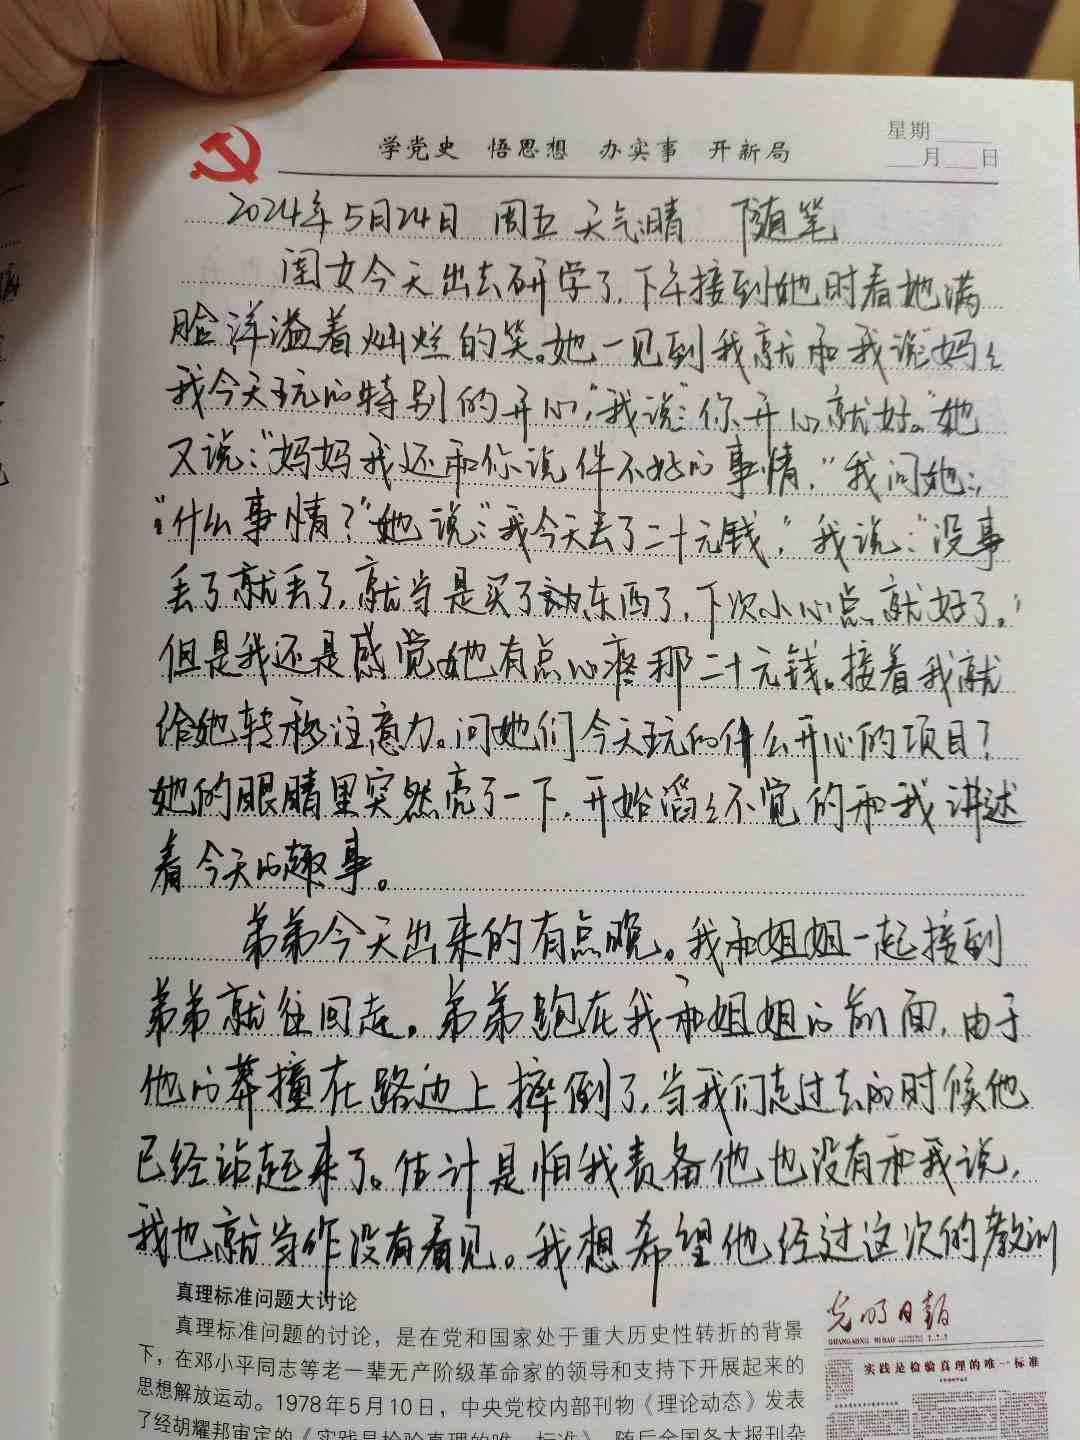 星期
学党史 悟思想 办实事 开新局
月 日
2024年5月24日 周五 天气晴 随笔
闺女今天出去研学了，下午接到她时看她满
脸洋溢着灿烂的笑。她一见到我就和我说“妈々
我今天玩的特别的开心，“我说：“你开心就好。”她
又说：“妈妈我还和你说件不好的事情，”我问她：，
“什么事情？”她说：“我今天丢了二十元钱，”我说：“没事
丢了就丢了，就当是买了东西了，下次小心点就好了。”
但是我还是感觉她有点心疼那二十元钱。接着我就
给她转移注意力。问她们今天玩的什么开心的项目？
她的眼睛里突然亮了一下，开始滔々不觉的和我讲述
着今天的趣事。
弟弟今天出来的有点晚。我和姐姐一起接到
弟弟就往回走。弟弟跑在我和姐姐的前面，由于
他的莽撞在路边上摔倒了，当我们走过去的时候他
已经站起来了。估计是怕我责备他也没有和我说，
我也就当作没有看见。我想希望他经过这次的教训
真理标准问题大讨论
真理标准问题的讨论，是在党和国家处于重大历史性转折的背景
下，在邓小平同志等老一辈无产阶级革命家的领导和支持下开展起来的
思想解放运动。1978年5月10日，中央党校内部刊物《理论动态》发表
了经胡耀邦审定的《实践是检验真理的唯一标准》，随后全国各大报刊杂
光明日报
GUANGMING RIBAO
实践是检验真理的唯一标准